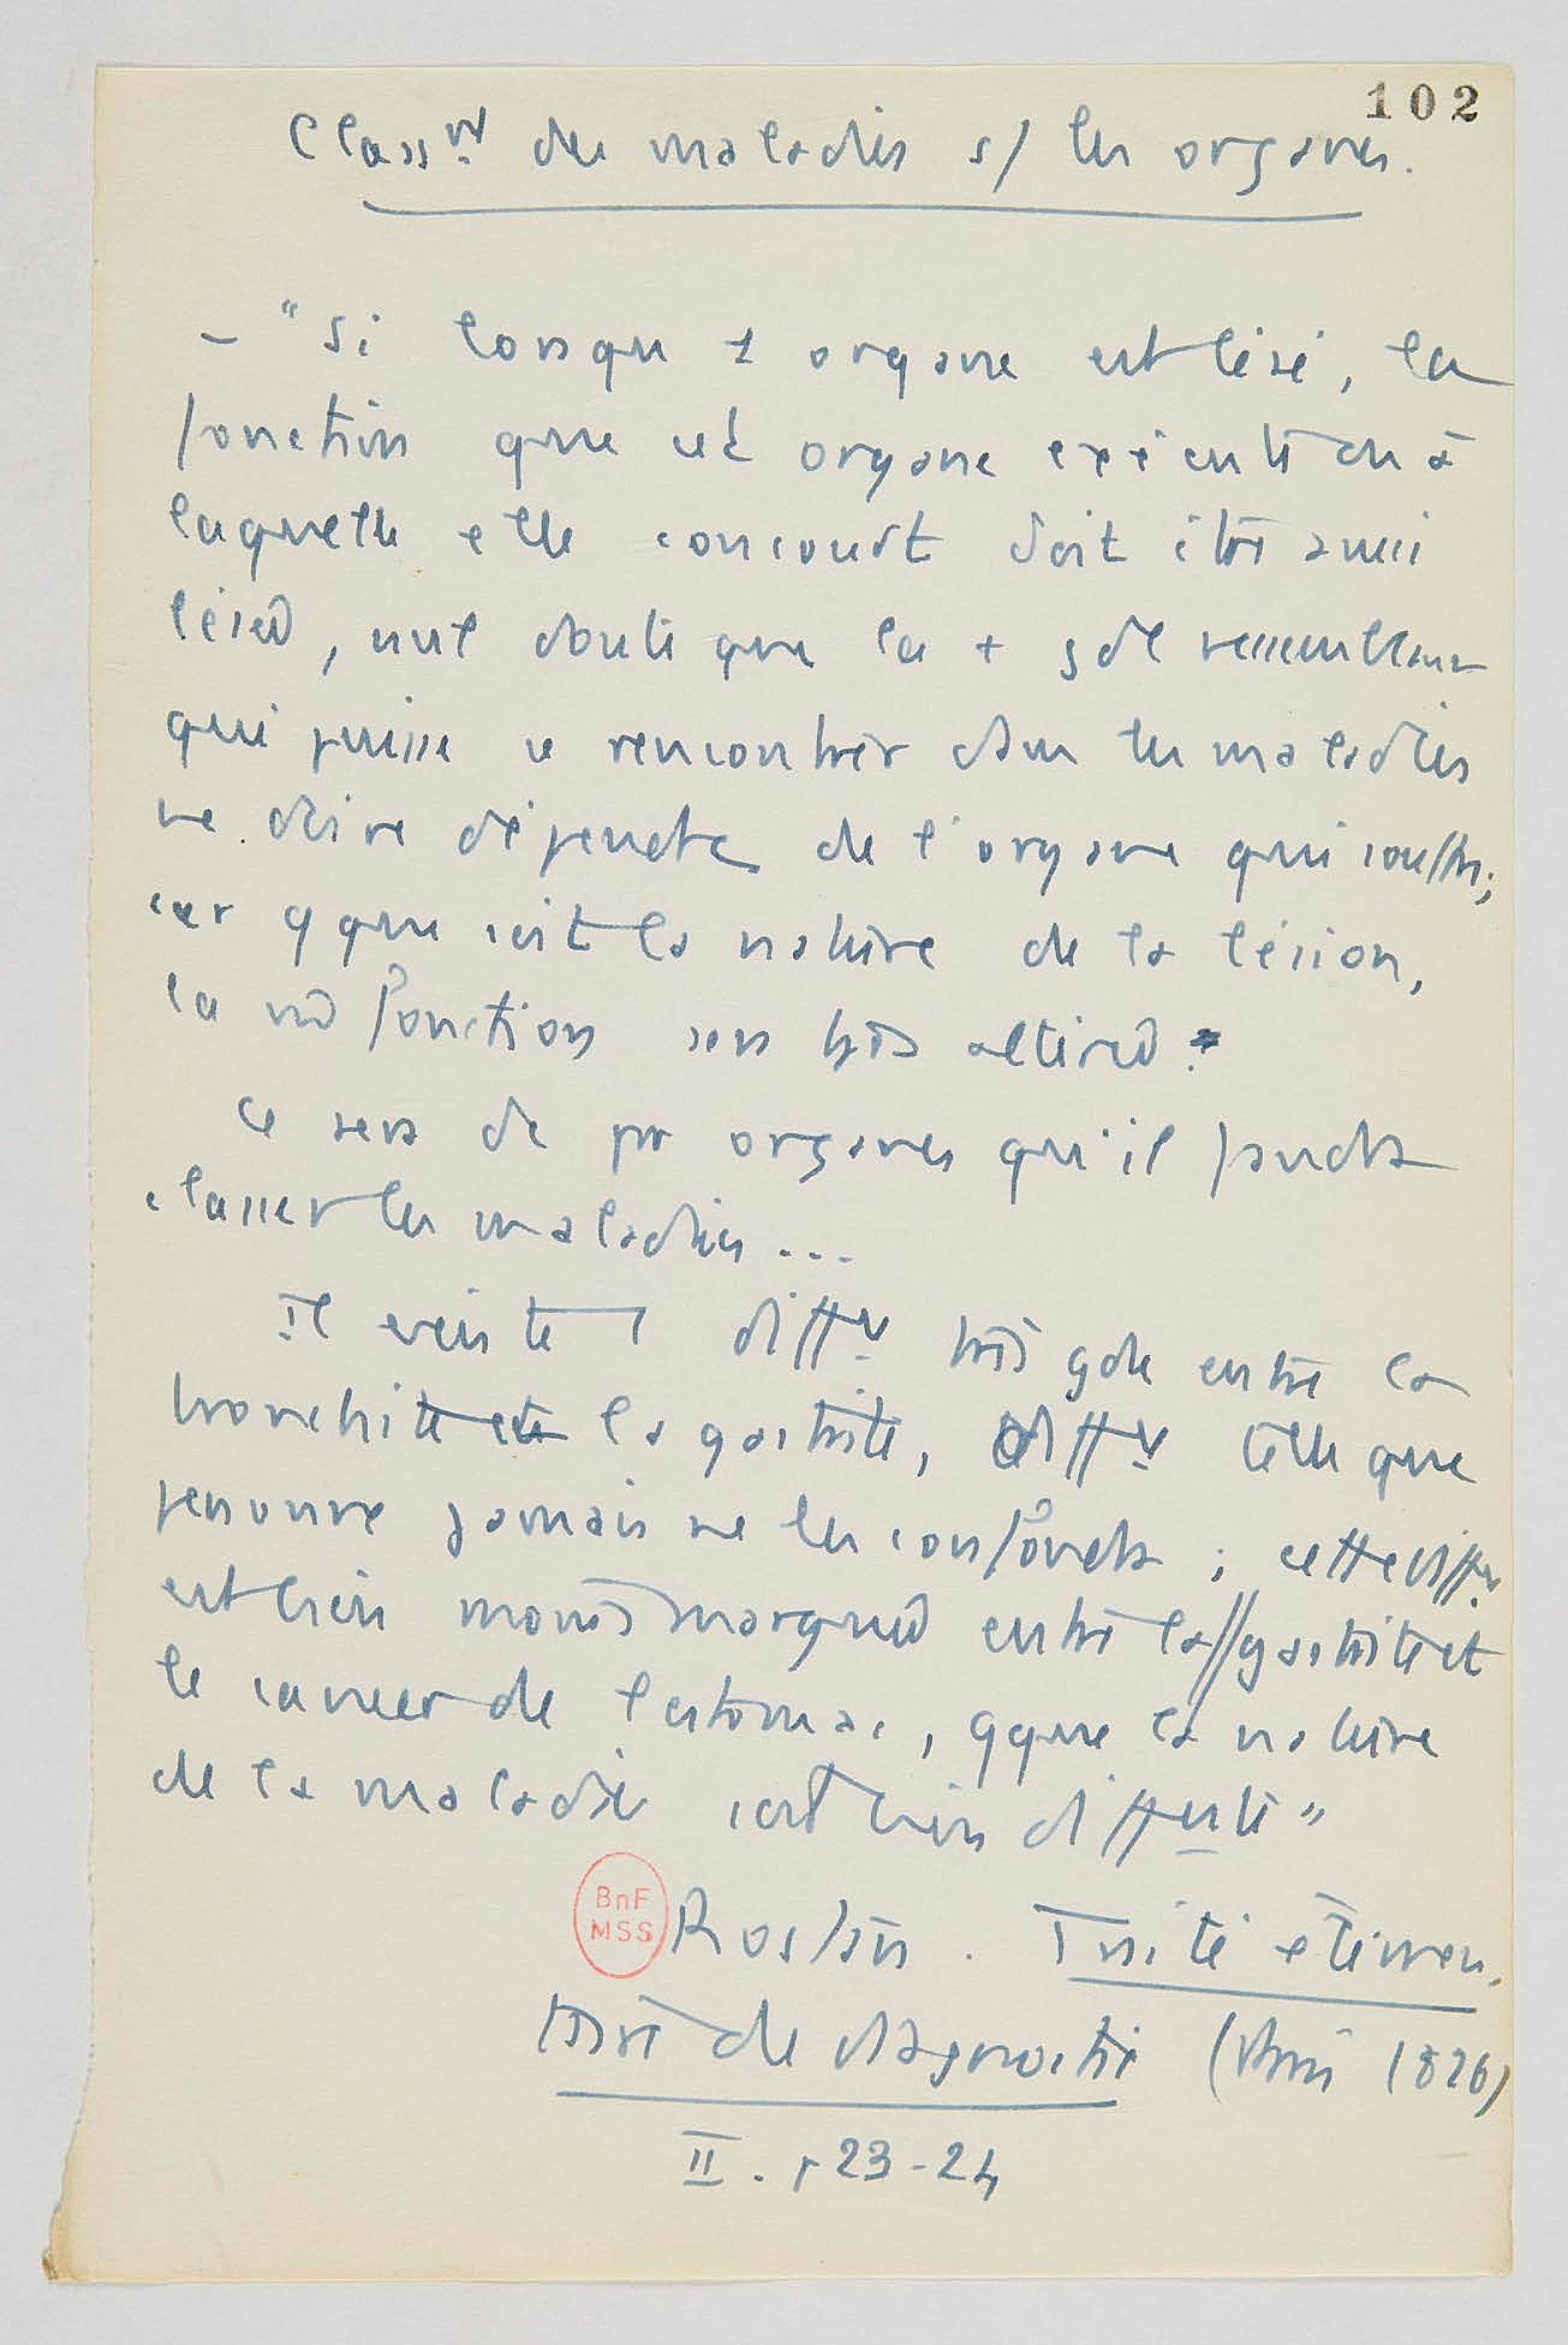 102
Classⁿ des maladies s/ les organes.
– "Si lorsqu'1 organe est lésé, la
fonction que cet organe exécute ou à
laquelle elle concourt doit être aussi
lésée, nul doute que la + gde ressemblance
qui puisse se rencontrer dans les maladies
ne doive dépendre de l'organe qui souffre;
car qque soit la nature de la lésion,
la fonction sera très altérée.
Ce sera de par organes qu'il faudra
classer les maladies...
Il existe 1 diffce très gde entre la
bronchite et la gastrite, diffce telle que
personne jamais ne les confondra ; cette diffce
est bien moins marquée entre la gastrite et
le cancer de l'estomac, qque la nature
de la maladie soit bien differte"
BnF
MSS
Rostan. Traité élémen.
taire de diagnostic (Paris 1826)
II. p 23-24